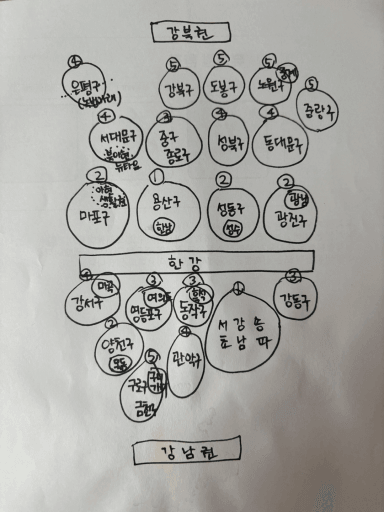 강북권
④
은평구
⑤
강북구
⑤
도봉구
⑤
노원구
⑤
중랑구
④
서대문구
북아현
뉴타운
③
중구
종로구
④
성북구
④
동대문구
②
아현
생활권
마포구
①
용산구
한남
②
성동구
성수
②
광장
광진구
한강
④
마곡
강서구
③
여의도
영등포구
③
흑석
동작구
①
서 강 송
초 남 파
③
강동구
②
양천구
목동
⑤
구로구
금천구
④
관악구
강남권